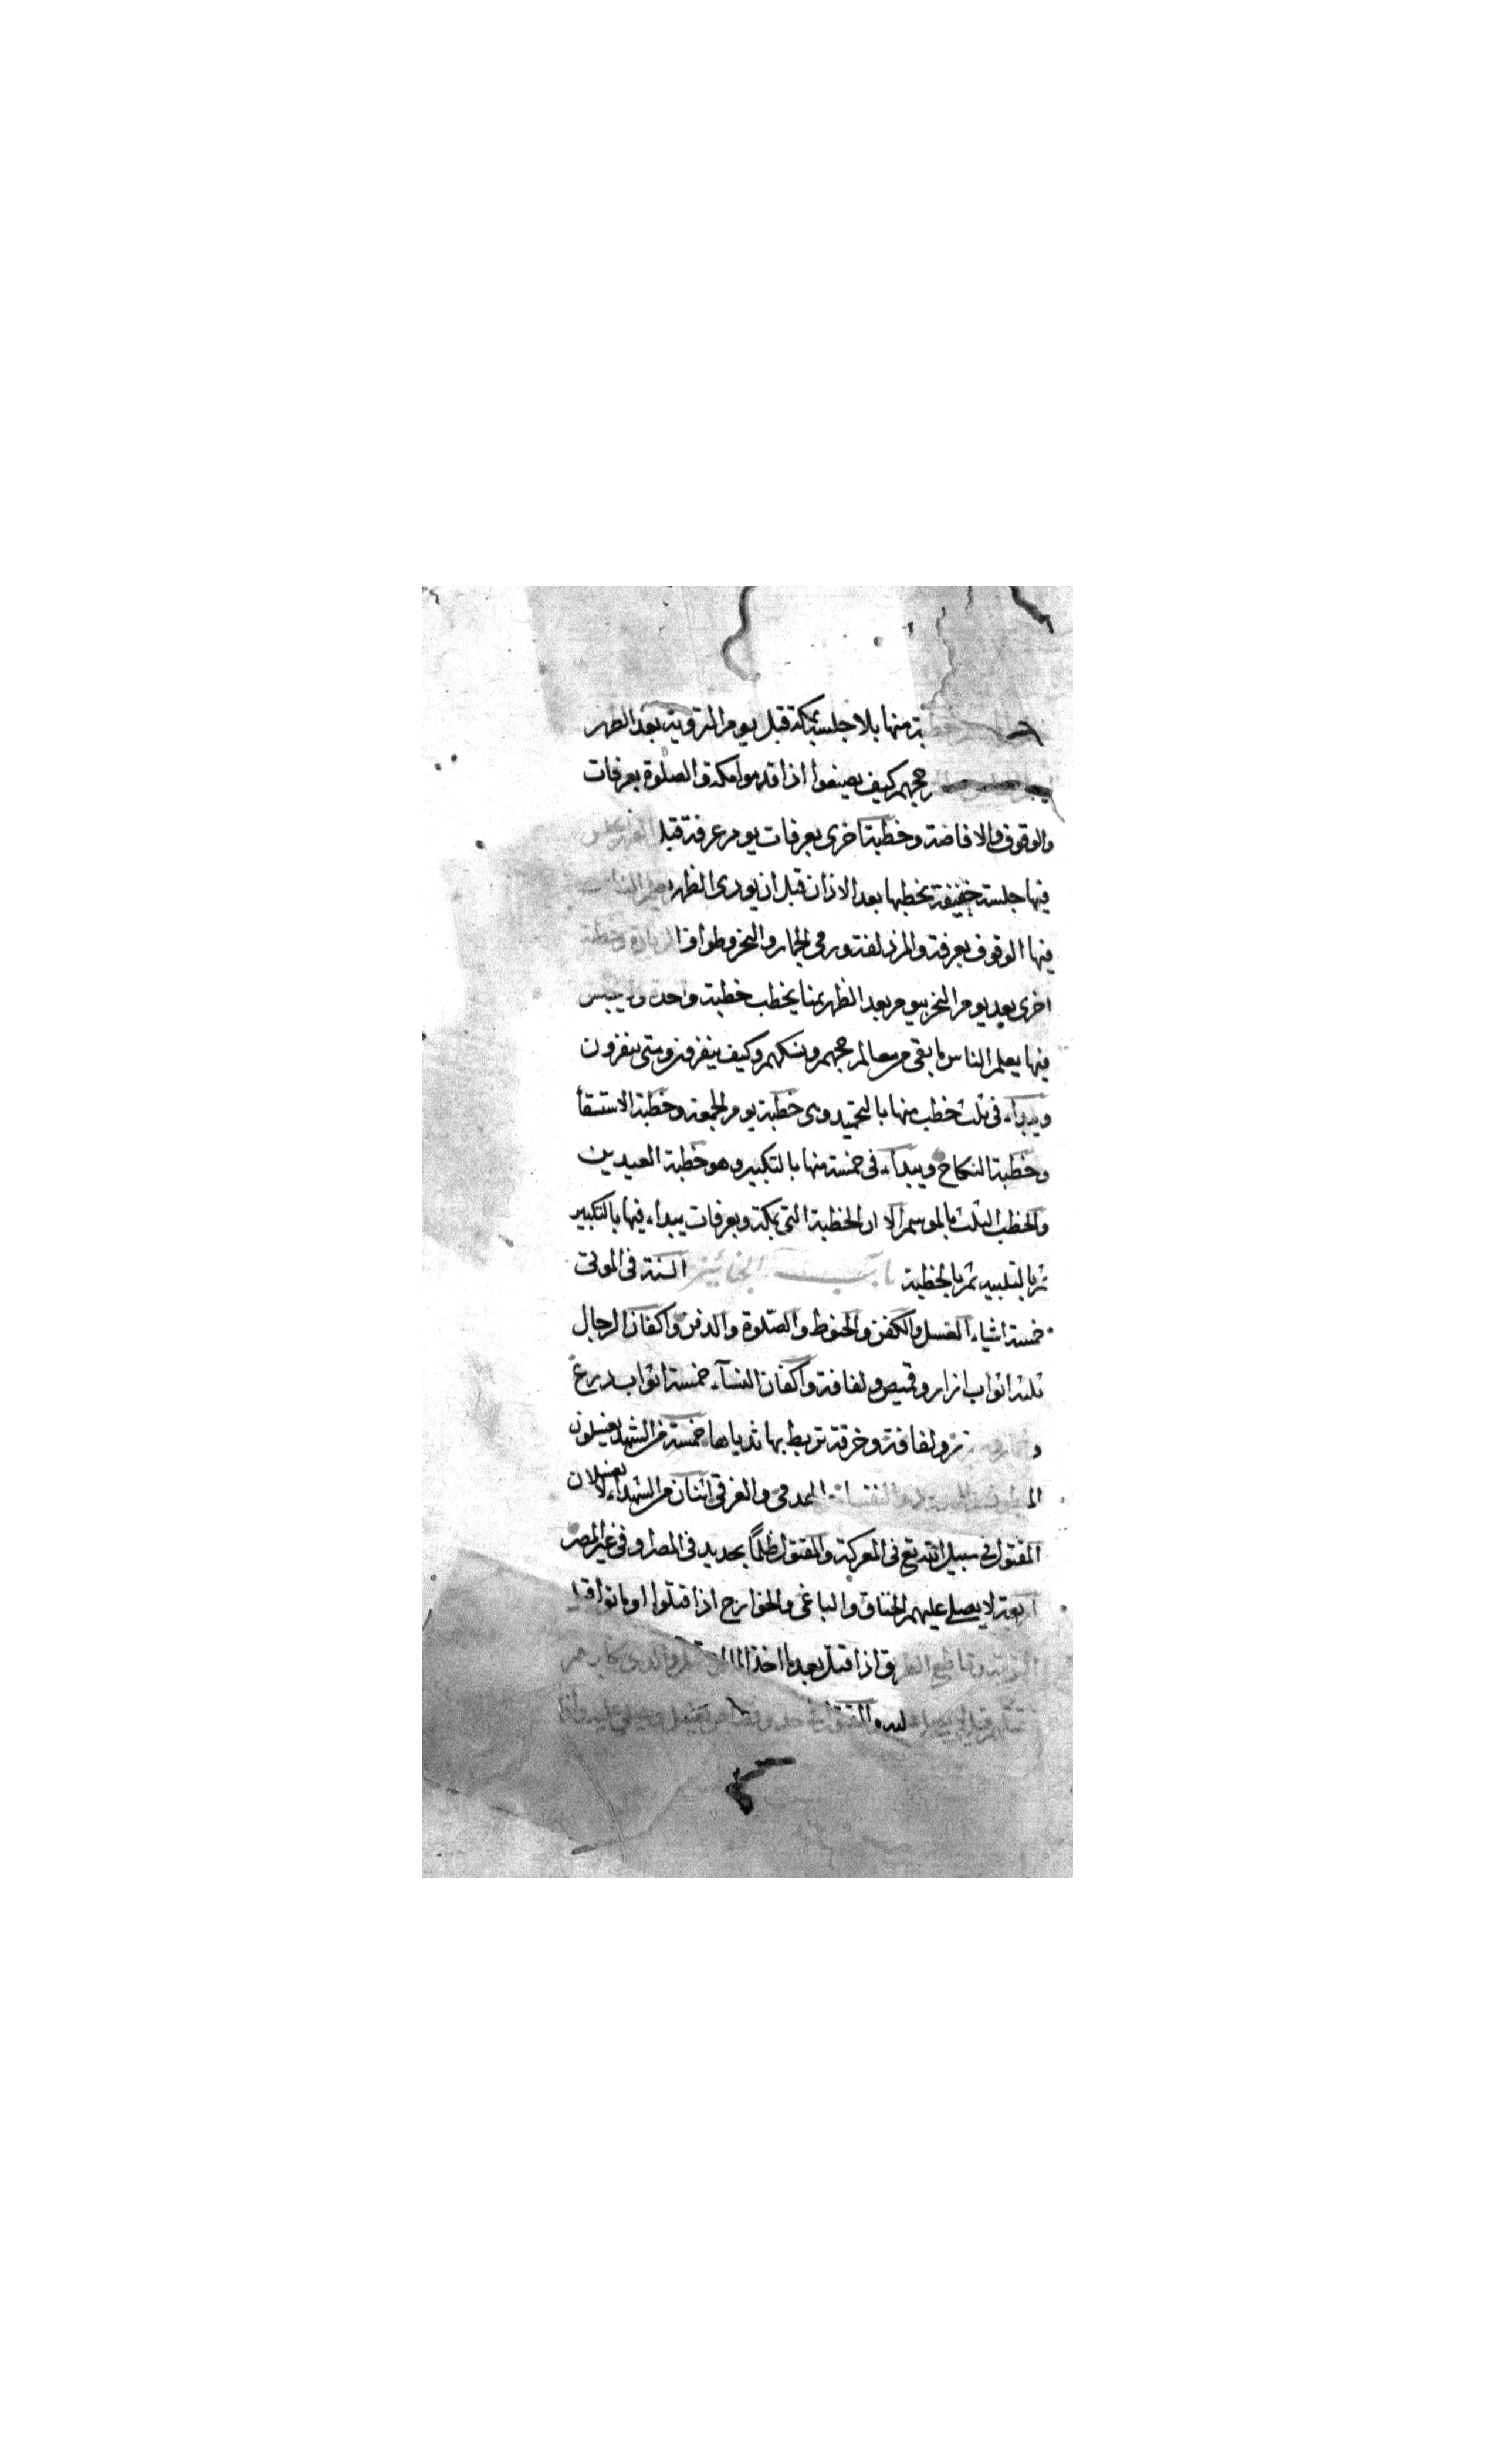 منها بلا جلسة بمكة قبل يوم التروية بعد الظهر
حجهم كيف يصنعوا اذا قدموا مكة والصلوة بعرفات
والوقوف والافاضة وخطبة اخرى بعرفات يوم عرفة قبل
فيها جلسة خفيفة يخطبها بعد الاذان قبل ان يودى الظهر
فيها الوقوف بعرفة والمزدلفة ورمى الجمار والنحر وطواف الزيارة وخطبة
اخرى بعد يوم النحر بيوم بعد الظهر بمنا يخطب خطبة واحدة ولا يجلس
فيها يعلم الناس ما بقى من معالم حجهم ونسكهم وكيف ينفرون ومتى ينفرون
ويبداء فى ثلث خطب منها بالتحميد وهى خطبة يوم الجمعة وخطبة الاستسقأ
وخطبة النكاح ويبداء فى خمسة منها بالتكبير وهو خطبة العيدين
والخطب الثلث بالموسم الا ان الخطبة التى بمكة وبعرفات يبداء فيها بالتكبير
ثم بالتلبيه ثم بالخطبة باب الجنائز السنة فى الموتى
خمسة اشياء الغسل والكفن والحنوط والصلوة والدفن واكفان الرجال
ثلثة اثواب ازار وقميص ولفافة واكفان النسآء خمسة اثواب درع
ولفافة وخرقة تربط بها ثدياها خمسة من الشهداء يغسلون
والغرقى اثنان من الشهداء لا يغسلان
المقتول فى سبيل الله تع فى المعركة والمقتول ظلماً بحديد فى المصر او فى غير المصر
اربعة لا يصلى عليهم الخناق والباغى والخوارج اذا قتلوا او ماتوا
وقاطع الطريق اذا قتل بعد ما اخذ المال